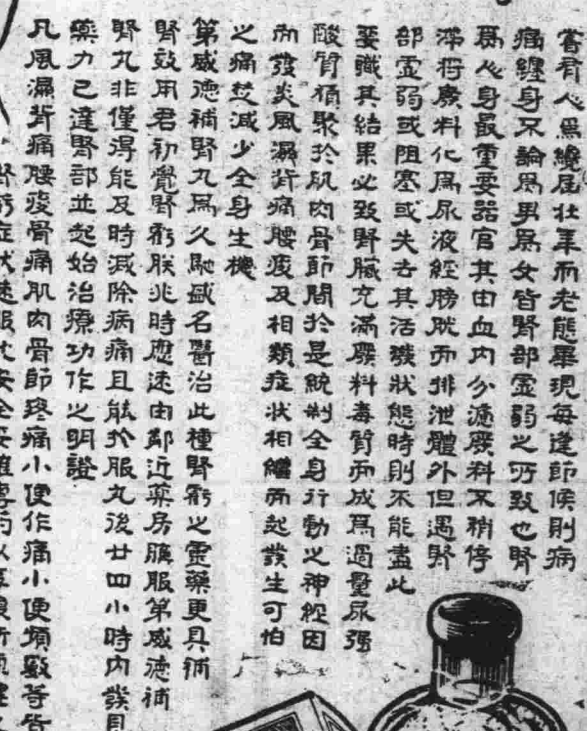 嘗有人焉纔屆壯年而老態畢現每逢節候則病
痛纏身不論爲男爲女皆腎部虛弱之所致也腎
爲人身最重要器官其由血內分濾廢料不稍停
滯將廢料化爲尿液經膀胱而排泄體外但遇腎
部虛弱或阻塞或失去其活潑狀態時則不能盡此
要職其結果必致腎臟充滿廢料毒質而成爲過量尿强
酸質積聚於肌肉骨節間於是統制全身行動之神經因
而發炎風濕背痛腰痠及相類症狀相繼而起發生可怕
之痛楚減少全身生機
第威德補腎丸爲久馳盛名醫治此種腎虧之靈藥更具補
腎效用君初覺腎虧朕兆時應速由鄰近藥房購服第威德補
腎丸非僅得能及時減除病痛且能於服丸後廿四小時內發見
藥力已達腎部並起始治療功作之明證
凡風濕背痛腰痠骨痛肌肉骨節疼痛小便作痛小便頻數等皆
腎虧症狀速服